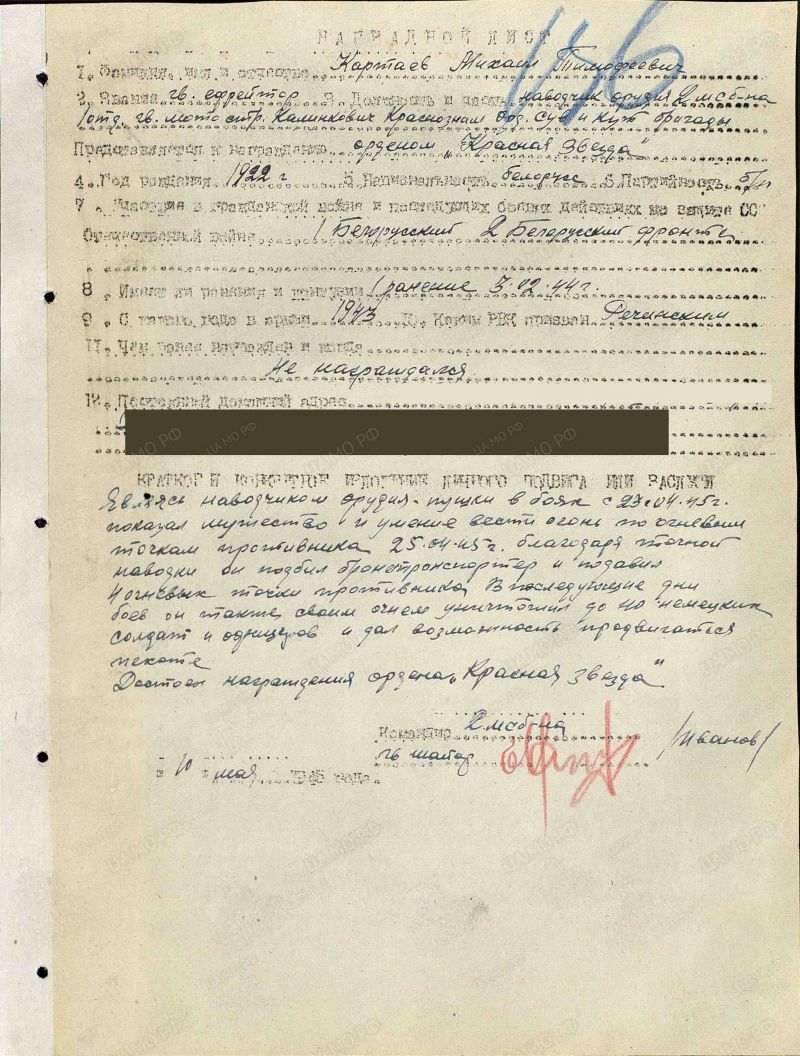 НАГРАДНОЙ ЛИСТ
196
1. Фамилия, имя и отчество Картаев Михаил Тимофеевич
2. Звание гв. ефрейтор 3. Должность и часть наводчик орудия 2 мсб-на
1 отд. гв. мото стр. Калинкович Краснознам Орд. Сув и Кут бригады
Представляется к награждению орденом „Красная Звезда"
4. Год рождения 1922 г 5. Национальность белорус 6. Партийность б/п
7. Участие в гражданской войне и последующих боевых действиях по защите СС
Отечественной войне 1 Белорусский 2 Белорусский фронте
8. Имеет ли ранения и контузии 1 ранение 3.02.44 г.
9. С какого года в армии 1943 10. Каким РВК призван Речицким
11. Чем ранее награжден и когда
Не награждался
12. Постоянный домашний адрес
КРАТКОЕ И КОНКРЕТНОЕ ИЗЛОЖЕНИЕ ЛИЧНОГО ПОДВИГА ИЛИ ЗАСЛУГИ
Являясь наводчиком орудия-пушки в боях с 23.04.45 г.
показал мужество и умение вести огонь по огневым
точкам противника 25.04.45 г. благодаря точной
наводки он подбил бронетранспортер и подавил
4 огневых точки противника, В последующие дни
боев он также своим огнем уничтожил до 40 немецких
солдат и офицеров и дал возможность продвигаться
пехоте
Достоен награждения ордена „Красная звезда"
Командир 2 мсб-на
гв майор /Иванов/
10 мая 1945 года.